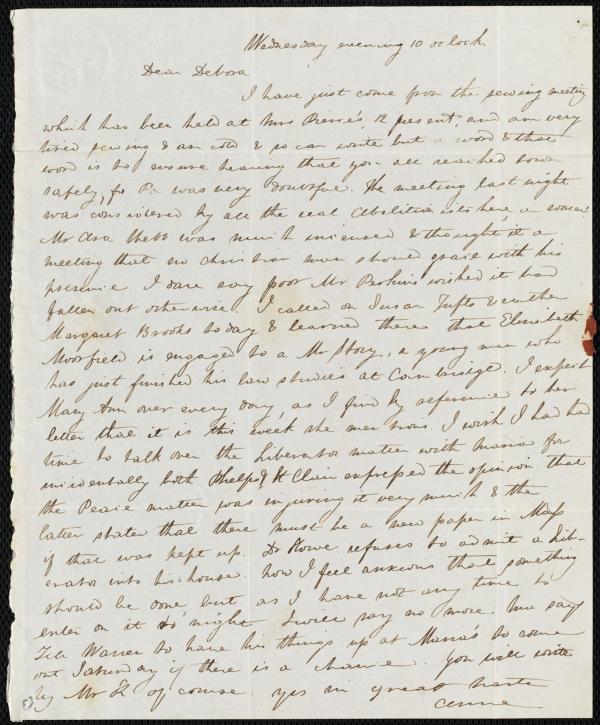 Wednesday evening 10 oclock.
Dear Debora
I have just come from the sewing meeting
which has been held at Mrs Pierse's, 12 present, and am very
tired sewing & am cold & so can write but a word & that
word is to ensure hearing that you all reached town
safely, for Pa was very doubtful. The meeting last night
was considered by all the real Abolitionists here, a
Mr Asa Webb was much incensed & thought it a
meeting that no christian man should grace with his
presence. I dare say poor Mr Perkins wished it had
fallen out otherwise. I called on Susan Tufts &
Margaret Brooks today & learned there that Elizabeth
Moorfield is engaged to a Mr Story, a young man who
has just finished his law studies at Cambridge. I expect
Mary Ann over every day, as I find by reference to her
letter that it is this week she mentions. I wish I had had
time to talk over the Liberator matter with Maria for
incidentally both Phelps & St Clair expressed the opinion that
the Peace matter was injuring it very much & the
latter stated that there must be a new paper in Mass
if that was kept up. Dr Howe refuses to admit a Lib-
erator into his house. how I feel anxious that something
should be done, but as I have not any time to
enter on it to night I will say no more. Ma says
Tell Warren to have his things up at Maria's to come
out Saturday if there is a chance. you will write
by Mr of course. yrs in great haste